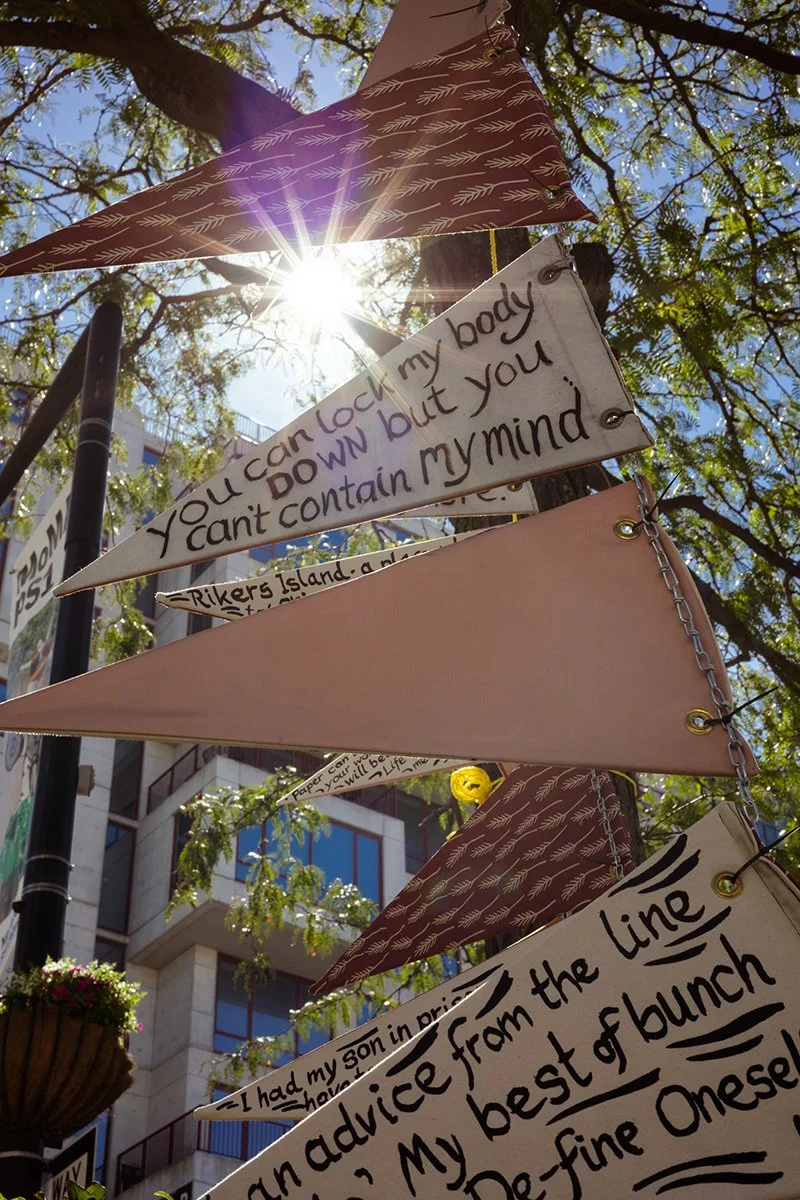 you can lock my body
DOWN but you
can't contain my mind
Rikers Island. a
MoMA
PS1
Paper can
your
will be
Life me
I had my son in
an advice from the line
My best of bunch
De-fine
WAY